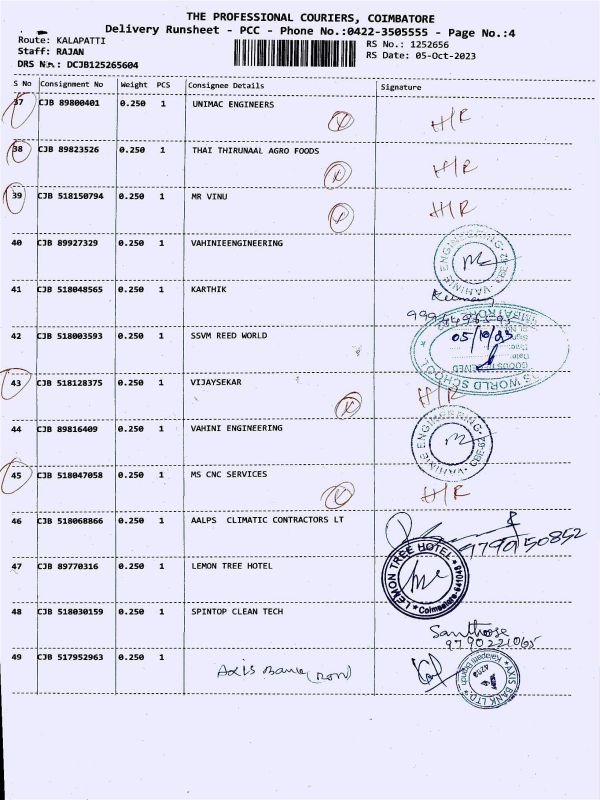 THE PROFESSIONAL COURIERS, COIMBATORE
Delivery Runsheet - PCC - Phone No.:0422-3505555 - Page No.:4
Route: KALAPATTI RS No.: 1252656
Staff: RAJAN RS Date: 05-Oct-2023
DRS No.: DCJB125265604
S No Consignment No Weight PCS Consignee Details Signature
37 CJB 89800401 0.250 1 UNIMAC ENGINEERS H/R
38 CJB 89823526 0.250 1 THAI THIRUNAAL AGRO FOODS H/R
39 CJB 518150794 0.250 1 MR VINU H/R
40 CJB 89927329 0.250 1 VAHINIEENGINEERING
VAHINIE ENGINEERING
41 CJB 518048565 0.250 1 KARTHIK
42 CJB 518003593 0.250 1 SSVM REED WORLD 05/10/23
WORLD SCHOOL
43 CJB 518128375 0.250 1 VIJAYSEKAR H/R
44 CJB 89816409 0.250 1 VAHINI ENGINEERING
VAHINIE ENGINEERING
45 CJB 518047058 0.250 1 MS CNC SERVICES H/R
46 CJB 518068866 0.250 1 AALPS CLIMATIC CONTRACTORS LT
9790150852
47 CJB 89770316 0.250 1 LEMON TREE HOTEL
LEMON TREE HOTEL
Coimbatore
48 CJB 518030159 0.250 1 SPINTOP CLEAN TECH
Santhose
9790221065
49 CJB 517952963 0.250 1 Axis Bank
AXIS BANK LTD.
Kalapatti Branch